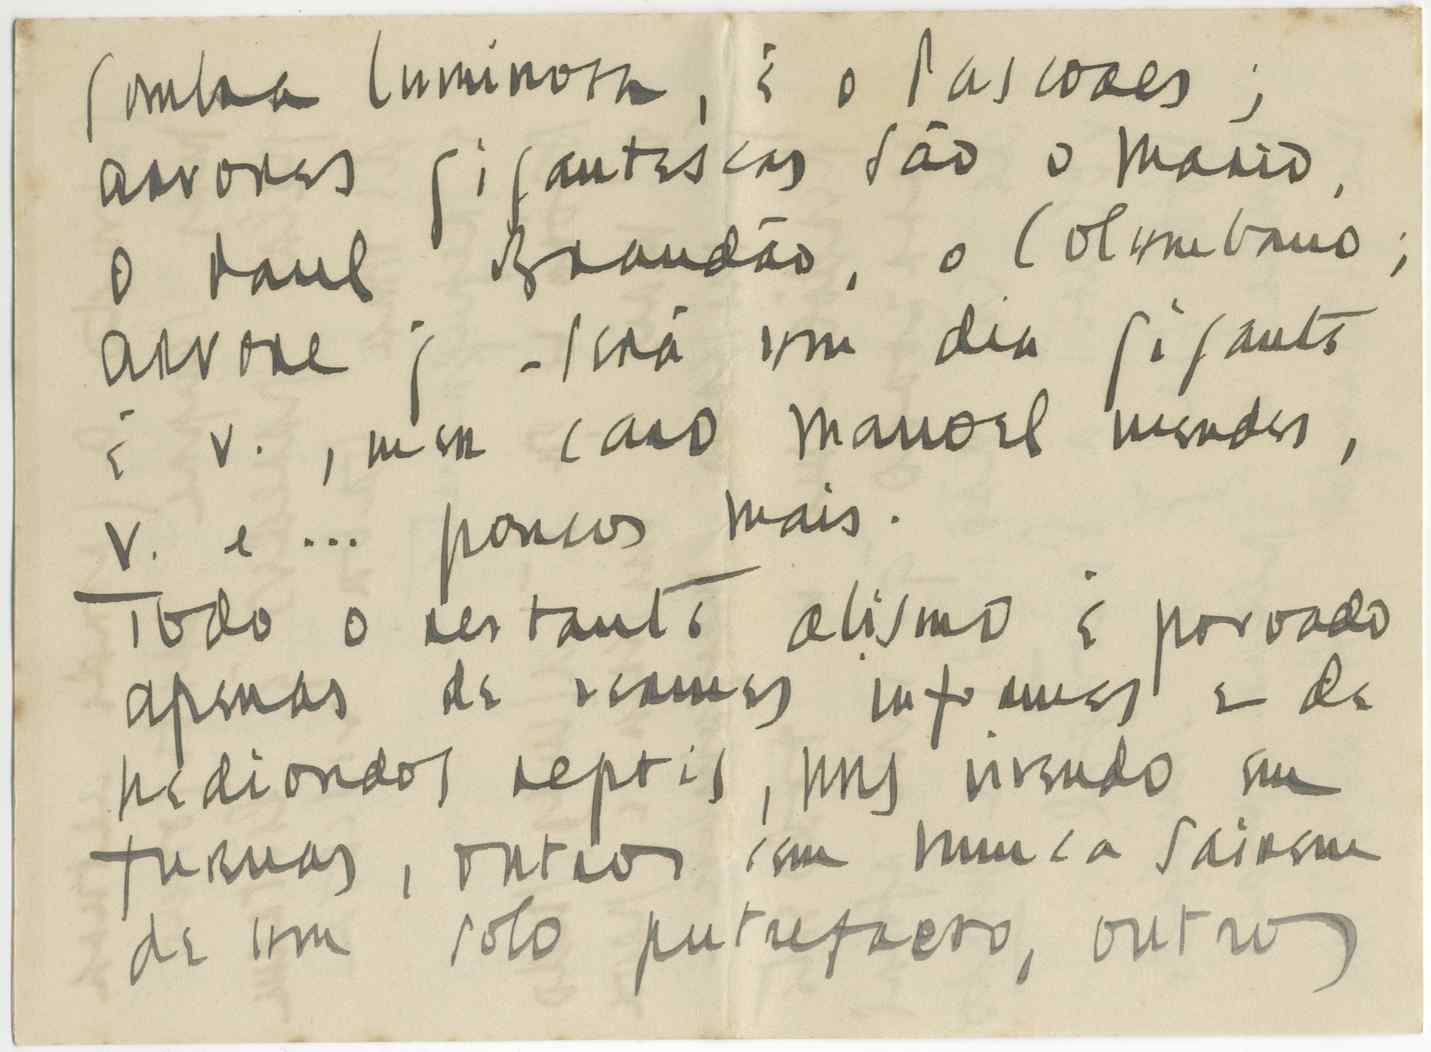 sombra luminosa, é o Pascoaes;
arvores gigantescas são o Mario,
o Raul Brandão, o Columbano;
arvore q. será um dia gigante
é V., meu caro Manoel Mendes,
V. e... poucos mais.
Todo o restante abismo é povoado
apenas de vermes informes e de
hediondos reptis, uns vivendo em
furnas, outros sem nunca sairem
de um solo putrefacto, outros